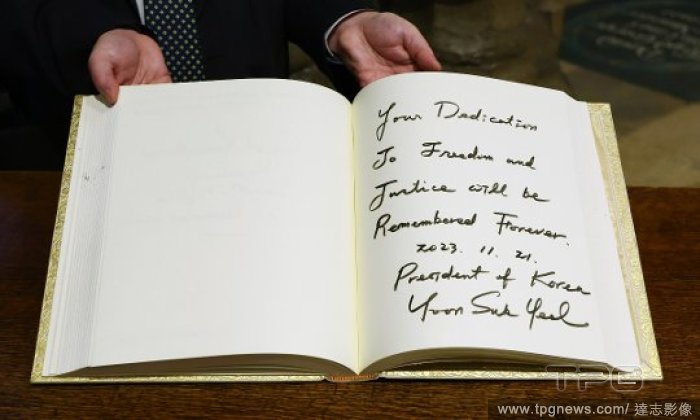 Your Dedication
To Freedom and
Justice will be
Remembered Forever.
2023. 11. 21.
President of Korea
Yoon Suk Yeol
TPG
www.tpgnews.com/ 達志影像